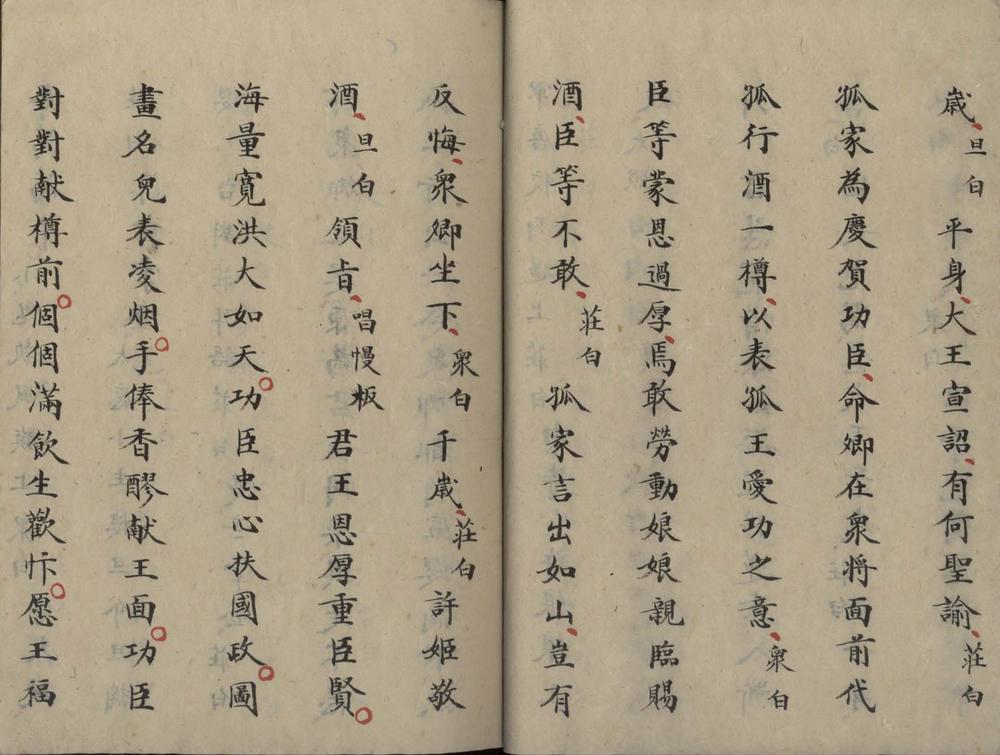 歲、旦白平身、大王宣詔、有何聖諭、莊白
孤家為慶賀功臣、命卿在衆將面前代
孤行酒一樽、以表孤王愛功之意、衆白
臣等蒙恩過厚、焉敢勞動娘娘親臨賜
酒、臣等不敢、莊白孤家言出如山、豈有
反悔、衆卿坐下、衆白千歲、莊白許姬敬
酒、旦白領旨、唱慢板君王恩厚重臣賢○
海量寬洪大如天○功臣忠心扶國政○圖
畫名兒表凌烟○手俸香醪献王面○功臣
對對献樽前○個個滿飲生歡忭○愿王福